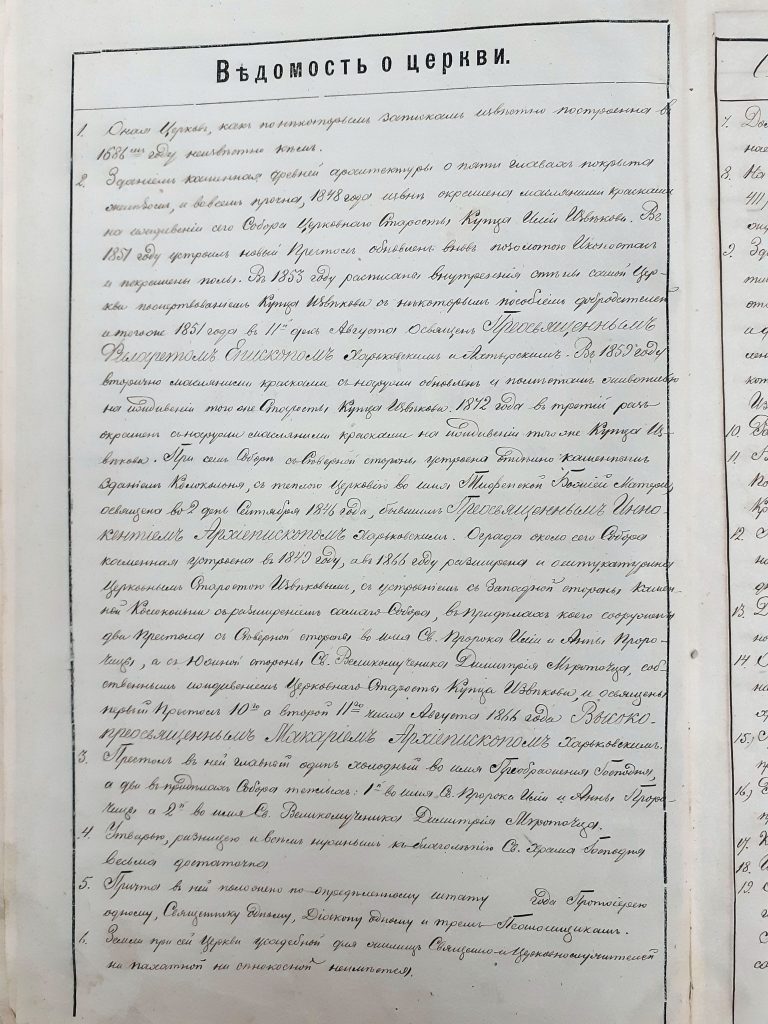 Вѣдомость о церкви.
1. Оная Церковь, какъ по нѣкоторымъ запискамъ извѣстно построенна въ
1686мъ году неизвѣстно кѣмъ.
2. Зданіемъ каменная древней архитектуры о пяти главахъ покрыта
желѣзомъ, и во всемъ прочна, 1848 года извнѣ окрашена масляними красками
на иждивеніи сего Собора Церковнаго Старосты Купца Иліи Извѣкова. Въ
1851 году устроенъ новый Престолъ обновленъ вновь позолотою Иконостасъ
и покрашены полы. Въ 1853 году расписана внутреннія стѣны самой Цер-
кви пожертвованіемъ Купца Извѣкова съ нѣкоторымъ пособіемъ добродѣтелей
и того же 1851 года въ 11й день Августа Освященъ Преосвященнымъ
Филаретомъ Епископомъ Харьковскимъ и Ахтырскимъ. Въ 1859 году
вторично масляними красками снаружи обновленъ и
на иждивеніи того же Старосты Купца Извѣкова. 1872 года въ третій разъ
окрашенъ снаружи масляними красками на иждивеніи того же Купца Из-
вѣкова. При семъ Соборѣ съ Сѣверной стороны устроена отдѣльно каменнымъ
зданіемъ Колокольня, съ теплою Церковію во имя Божіей Матери,
освящена во 2 день Сентября 1846 года, бывшимъ Преосвященнымъ Инно-
кентіемъ Архіепископомъ Харьковскимъ. Ограда около сего Собора
каменная устроена въ 1849 году, а въ 1866 году разширена и оштукатурена
Церковнымъ Старостою Извѣковымъ, съ устроеніемъ съ Западной стороны Камен-
ной Колокольни съ разширеніемъ самаго Собора, въ придѣлахъ коего сооружены
два Престола съ Сѣверной стороны во имя Св. Пророка Иліи и Анны Проро-
чицы, а съ Южной стороны Св. Великомученика Димитрія Мѵроточца, соб-
ственнымъ иждивеніемъ Церковнаго Старосты Купца Извѣкова, и освящены
первый Престолъ 10го а второй 11го числа Августа 1866 года Высоко-
преосвященнымъ Макаріемъ Архіепископомъ Харьковскимъ.
3. Престолъ въ ней главный одинъ холодный во имя Преображенія Господня,
а два въ придѣлахъ Собора теплыхъ: 1й во имя Св. Пророка Иліи и Анны Проро-
чицы а 2й во имя Св. Великомученика Димитрія Мѵроточца.
4. Утварью, ризницею и всѣмъ нужнымъ къ благолѣпію Св. Храма Господня
весьма достаточна
5. Причта въ ней положено по опредѣленному штату года Протоіерею
одному, Священнику одному, Діакону одному и тремъ Псаломщикамъ.
6. Земли при сей Церкви усадебной для жилищъ Священно и Церковнослужителей
ни пахатной ни сѣнокосной неимѣется.
7.
8. На
9. Зд
10.
11.
12
13.
14
15)
16)
17.
18.
19.